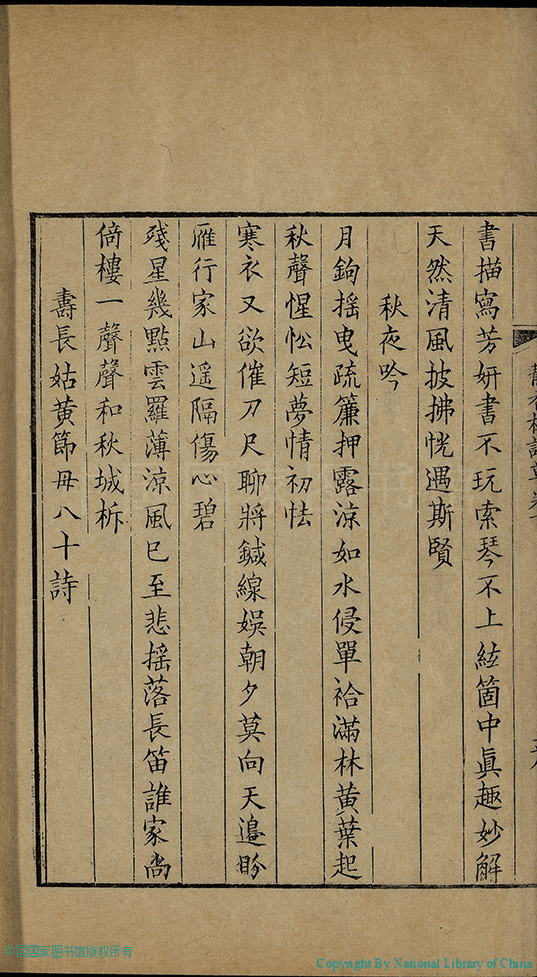 書描寫芳妍書不玩索琴不上絃箇中眞趣妙解
天然清風披拂恍遇斯賢
秋夜吟
月鉤搖曳疏簾押露涼如水侵單袷滿林黃葉起
秋聲惺忪短夢情初怯
寒衣又欲催刀尺聊將鍼線娛朝夕莫向天邉盻
雁行家山遥隔傷心碧
殘星幾點雲羅薄涼風已至悲搖落長笛誰家尚
倚樓一聲聲和秋城柝
壽長姑黃節母八十詩
中国国家图书馆版权所有
Copyright By National Library of China